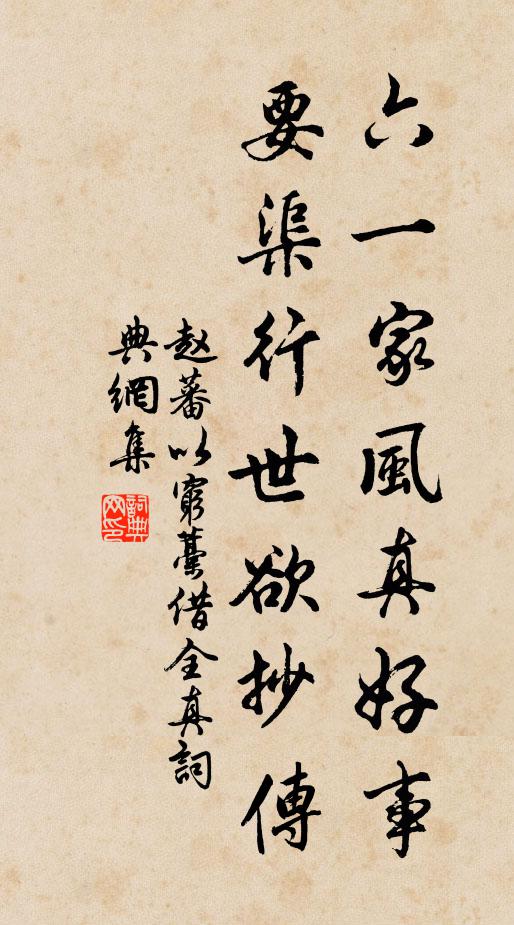 六一家風真好事
要渠行世欲抄傳
趙蕃以窮藁借全真詞
典網集
詞典網印